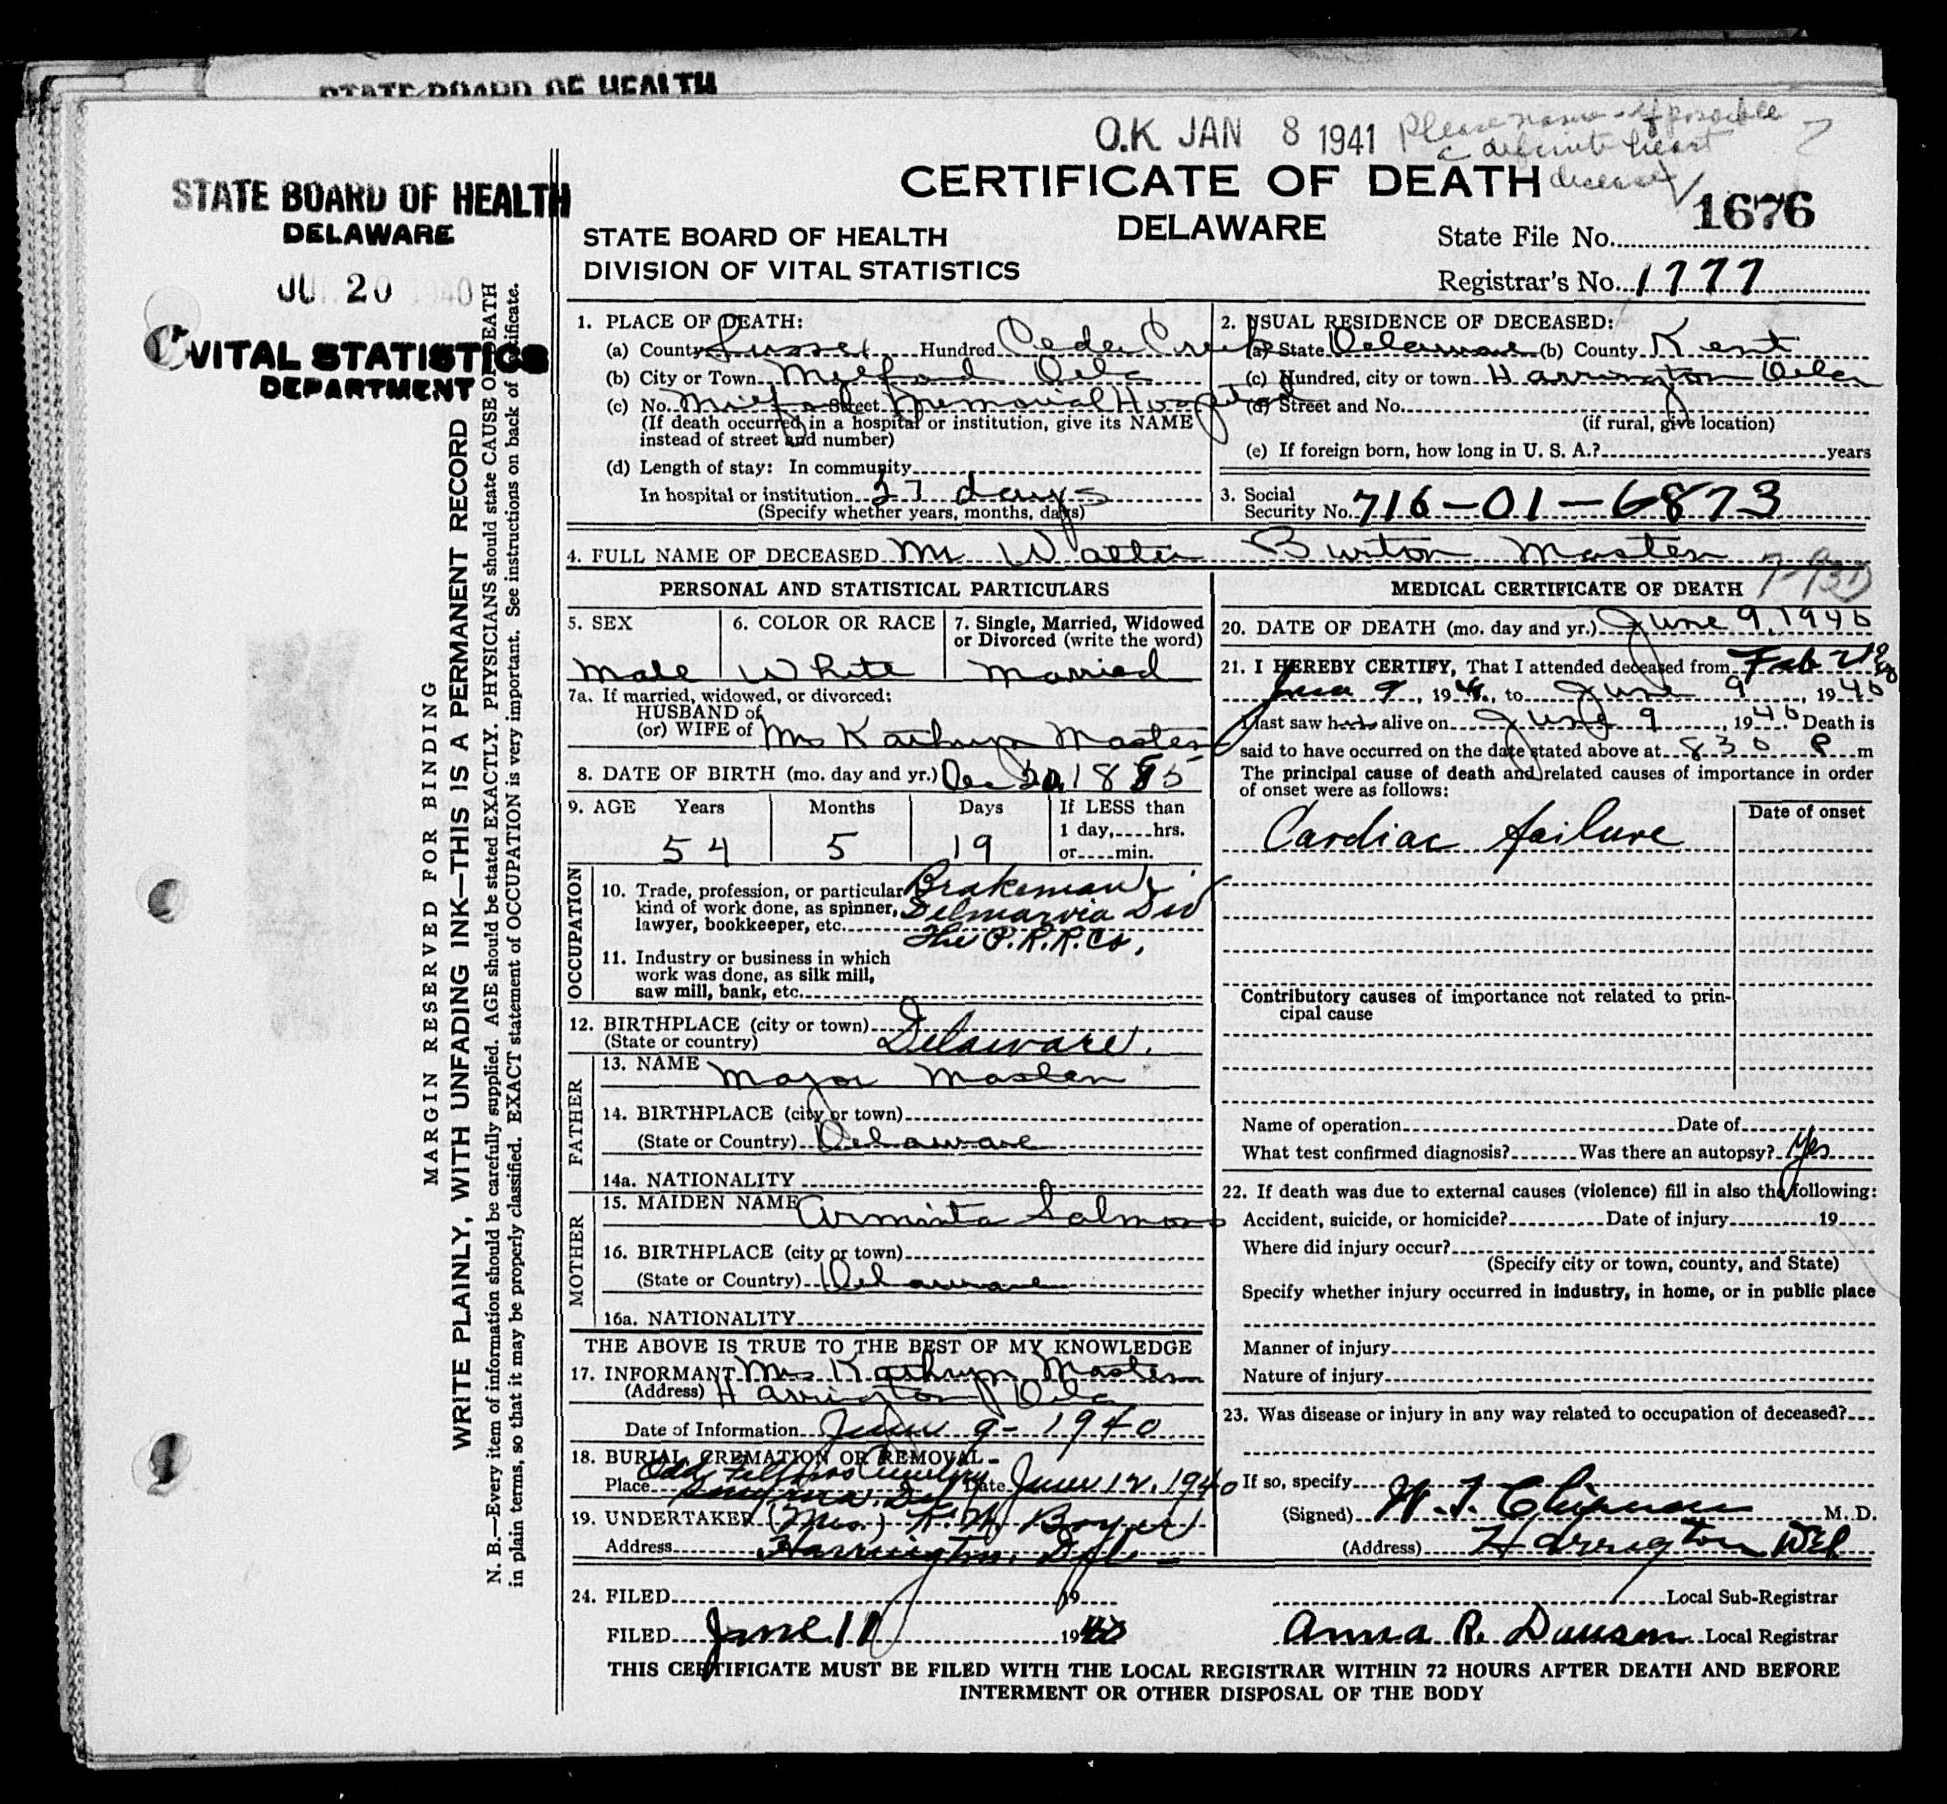 STATE BOARD OF HEALTH
O.K JAN 8 1941
Please name if possible
a definite heart
disease
STATE BOARD OF HEALTH
DELAWARE
JU 20 1940
VITAL STATISTICS
DEPARTMENT
MARGIN RESERVED FOR BINDING
WRITE PLAINLY, WITH UNFADING INK—THIS IS A PERMANENT RECORD
N. B.—Every item of information should be carefully supplied. AGE should be stated EXACTLY. PHYSICIANS should state CAUSE OF DEATH
in plain terms, so that it may be properly classified. EXACT statement of OCCUPATION is very important. See instructions on back of certificate.
CERTIFICATE OF DEATH
DELAWARE
STATE BOARD OF HEALTH
DIVISION OF VITAL STATISTICS
State File No. 1676
Registrar's No. 1777
1. PLACE OF DEATH:
(a) County Sussex Hundred Cedar Creek
(b) City or Town Milford Dela
(c) No. Milford Street Memorial Hospital
(If death occurred in a hospital or institution, give its NAME
instead of street and number)
(d) Length of stay: In community
In hospital or institution 27 days
(Specify whether years, months, days)
2. USUAL RESIDENCE OF DECEASED:
(a) State Delaware (b) County Kent
(c) Hundred, city or town Harrington Dela
(d) Street and No.
(if rural, give location)
(e) If foreign born, how long in U. S. A.? years
3. Social
Security No. 716-01-6873
4. FULL NAME OF DECEASED Mr Walter Burton Masten
PERSONAL AND STATISTICAL PARTICULARS
5. SEX
Male
6. COLOR OR RACE
White
7. Single, Married, Widowed
or Divorced (write the word)
Married
7a. If married, widowed, or divorced:
HUSBAND of
(or) WIFE of Mrs Kathryn Masten
8. DATE OF BIRTH (mo. day and yr.) Dec 20, 1885
9. AGE Years Months Days If LESS than
1 day, hrs.
54 5 19 or min.
OCCUPATION
10. Trade, profession, or particular Brakeman
kind of work done, as spinner, Delmarvia Div
lawyer, bookkeeper, etc.
The P.R.R. Co.
11. Industry or business in which
work was done, as silk mill,
saw mill, bank, etc.
12. BIRTHPLACE (city or town)
(State or country) Delaware.
FATHER
13. NAME Major Masten
14. BIRTHPLACE (city or town)
(State or Country) Delaware
14a. NATIONALITY
MOTHER
15. MAIDEN NAME Arminta Salmons
16. BIRTHPLACE (city or town)
(State or Country) Delaware
16a. NATIONALITY
THE ABOVE IS TRUE TO THE BEST OF MY KNOWLEDGE
17. INFORMANT Mrs Kathryn Masten
(Address) Harrington Dela
Date of Information June 9-1940
18. BURIAL, CREMATION OR REMOVAL
Place Odd Fellows Cemetery Date June 12, 1940
Smyrna, Del
19. UNDERTAKER (Mrs.) K. M. Boyer
Address Harrington, Del-
MEDICAL CERTIFICATE OF DEATH
20. DATE OF DEATH (mo. day and yr.) June 9, 1940
21. I HEREBY CERTIFY, That I attended deceased from Feb
June 9, 19 40, to June 9, 1940
I last saw him alive on June 9, 1940 Death is
said to have occurred on the date stated above at 830 P m
The principal cause of death and related causes of importance in order
of onset were as follows:
Date of onset
Cardiac failure
Contributory causes of importance not related to prin-
cipal cause
Name of operation Date of
What test confirmed diagnosis? Was there an autopsy? Yes
22. If death was due to external causes (violence) fill in also the following:
Accident, suicide, or homicide? Date of injury 19
Where did injury occur?
(Specify city or town, county, and State)
Specify whether injury occurred in industry, in home, or in public place
Manner of injury
Nature of injury
23. Was disease or injury in any way related to occupation of deceased?
If so, specify
(Signed) W. T. Chipman M. D.
(Address) Harrington Del
24. FILED 19 Local Sub-Registrar
FILED June 11 1940 Anna R. Dawson Local Registrar
THIS CERTIFICATE MUST BE FILED WITH THE LOCAL REGISTRAR WITHIN 72 HOURS AFTER DEATH AND BEFORE
INTERMENT OR OTHER DISPOSAL OF THE BODY